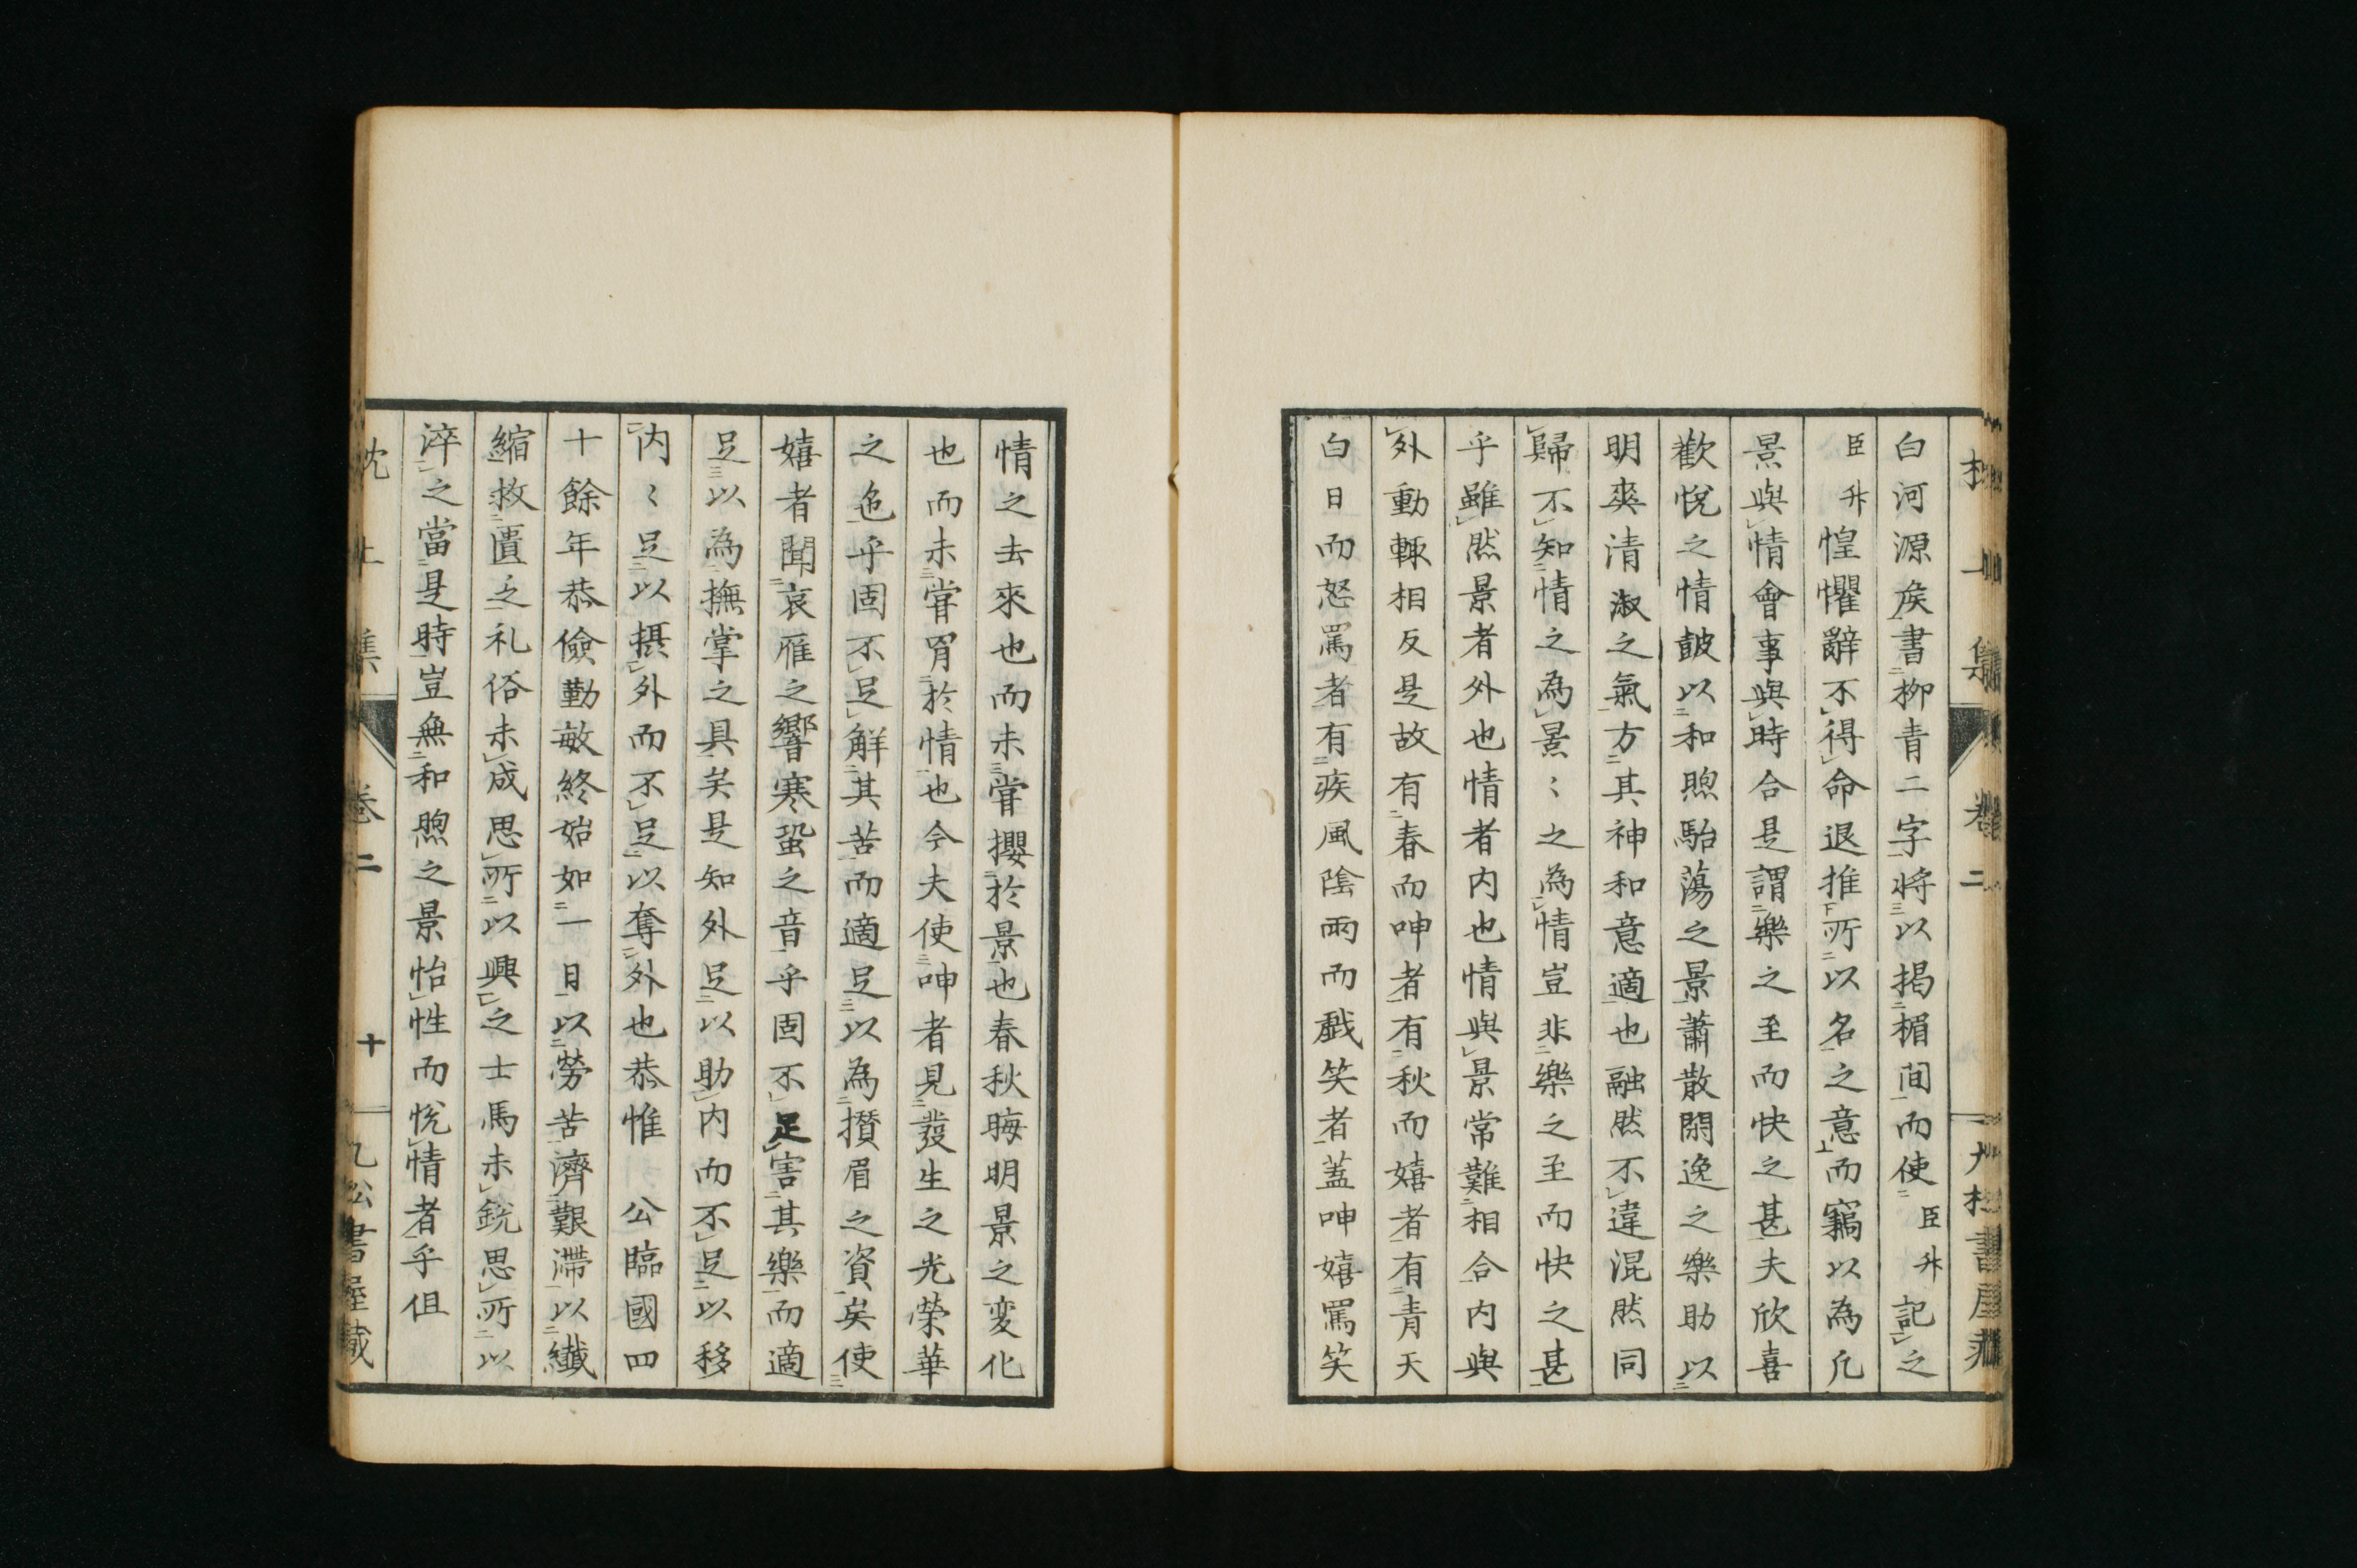 白河源侯書柳青二字將以揭楣間而使臣升記之
臣升惶懼辭不得命退推所以名之意而竊以為凡
景與情會事與時合是謂樂之至而快之甚夫欣喜
歡悅之情皷以和煦駘蕩之景蕭散閑逸之樂助以
明爽清淑之氣方其神和意適也融然不違混然同
歸不知情之為景〻之為情豈非樂之至而快之甚
乎雖然景者外也情者内也情與景常難相合内與
外動輒相反是故有春而呻者有秋而嬉者有青天
白日而怒罵者有疾風陰雨而戲笑者蓋呻嬉罵笑
情之去來也而未嘗攖於景也春秋晦明景之変化
也而未嘗罥於情也今夫使呻者見發生之光榮華
之色乎固不足解其苦而適足以為攅眉之資矣使
嬉者聞哀雁之響寒蛩之音乎固不足害其樂而適
足以為撫掌之具矣是知外足以助内而不足以移
内〻足以摂外而不足以奪外也恭惟　公臨國四
十餘年恭儉勤敏終始如一日以勞苦濟艱滯以纖
縮救匱乏礼俗未成思所以興之士馬未銳思所以
淬之當是時豈無和煦之景怡性而悅情者乎但
卷二
十
九松書屋蔵